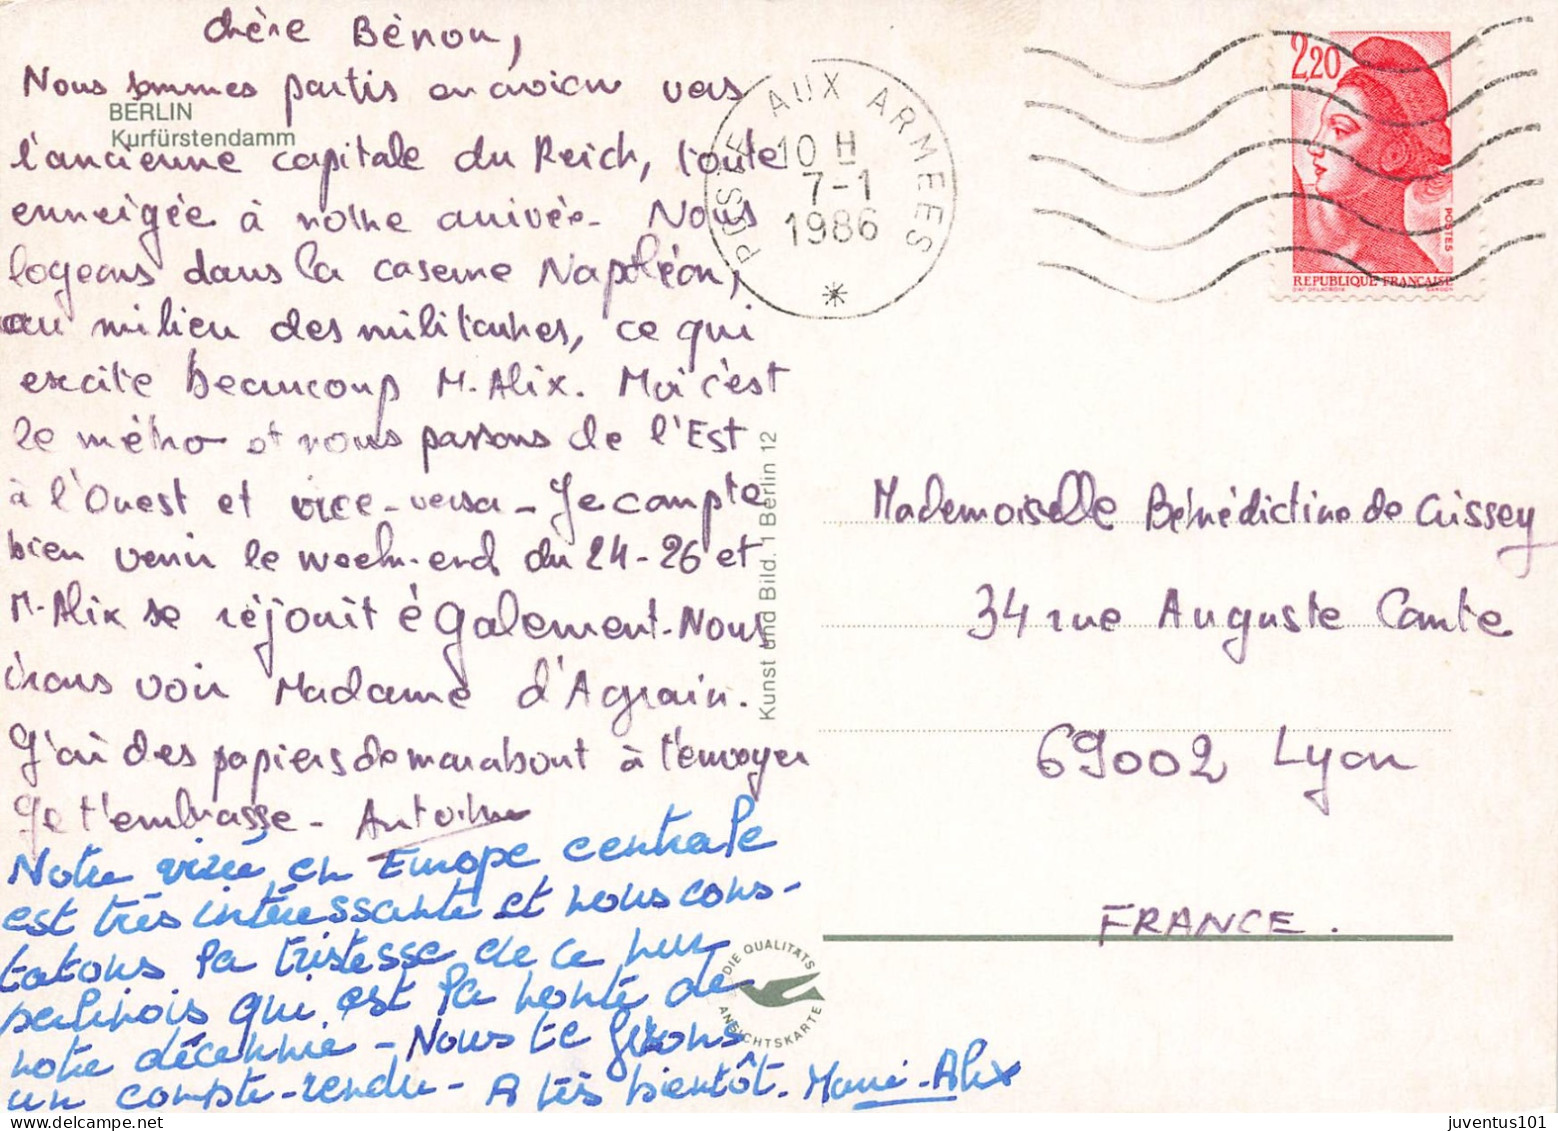 chère Bénou,
Nous sommes partis en avion vers
BERLIN
Kurfürstendamm
l'ancienne capitale du Reich, toute
enneigée à notre arrivée. Nous
logeons dans la caserne Napoléon,
au milieu des militaires, ce qui
excite beaucoup M-Alix. Moi c'est
le métro et nous passons de l'Est
à l'Ouest et vice-versa - Je compte
bien venir le week-end du 24-26 et
M-Alix se réjouit également. Nous
irons voir Madame d'Agrain.
J'ai des papiers de marabout à t'envoyer
Je t'embrasse - Antoine
Notre virée en Europe centrale
est très intéressante et nous cons-
tatons la tristesse de ce mur
berlinois qui est la honte de
notre décennie - Nous te ferons
un compte-rendu - A très bientôt. Marie-Alix
Kunst und Bild. 1 Berlin 12
DIE QUALITÄTS
ANSICHTSKARTE
POSTE AUX ARMEES
10 H
7-1
1986
2,20
POSTES
REPUBLIQUE FRANÇAISE
Mademoiselle Bénédictine de Cissey
34 rue Auguste Comte
69002 Lyon
FRANCE.
juventus101